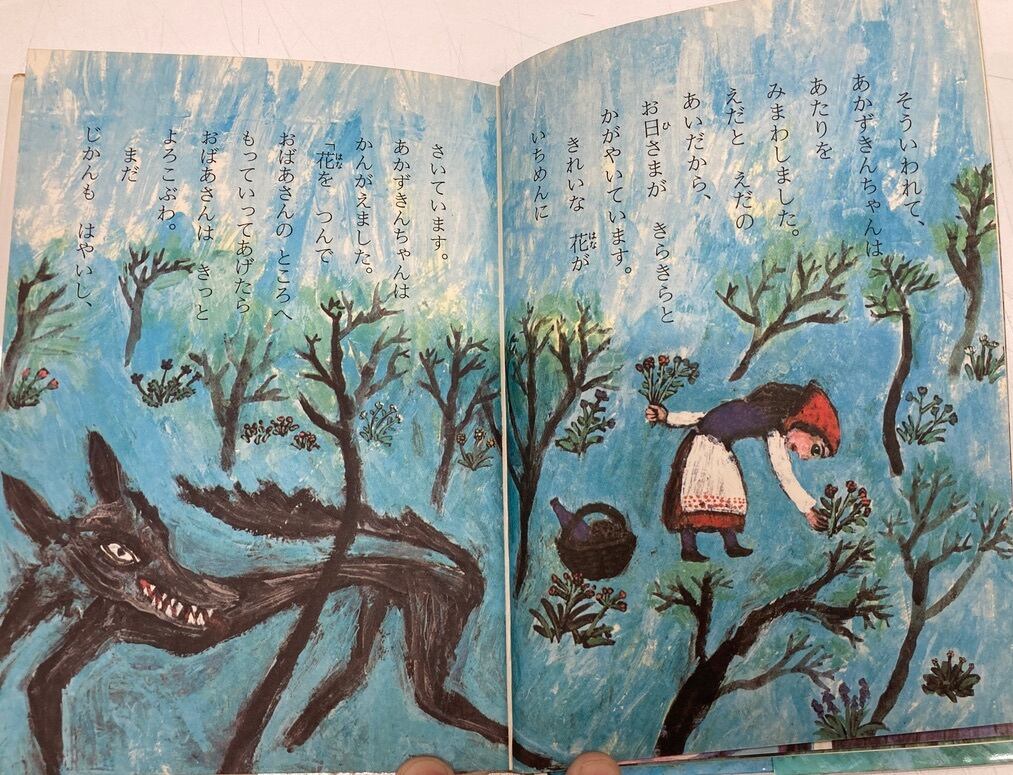 そういわれて、
あかずきんちゃんは
あたりを
みまわしました。
えだと えだの
あいだから、
お日さまが きらきらと
かがやいています。
きれいな 花が
いちめんに
さいています。
あかずきんちゃんは
かんがえました。
「花を つんで
おばあさんの ところへ
もっていってあげたら
おばあさんは きっと
よろこぶわ。
まだ
じかんも はやいし、